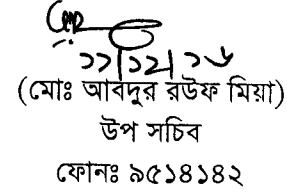 ১১/১২/১৬
(মোঃ আবদুর রউফ মিয়া)
উপ সচিব
ফোনঃ ৯৫১৪১৪২